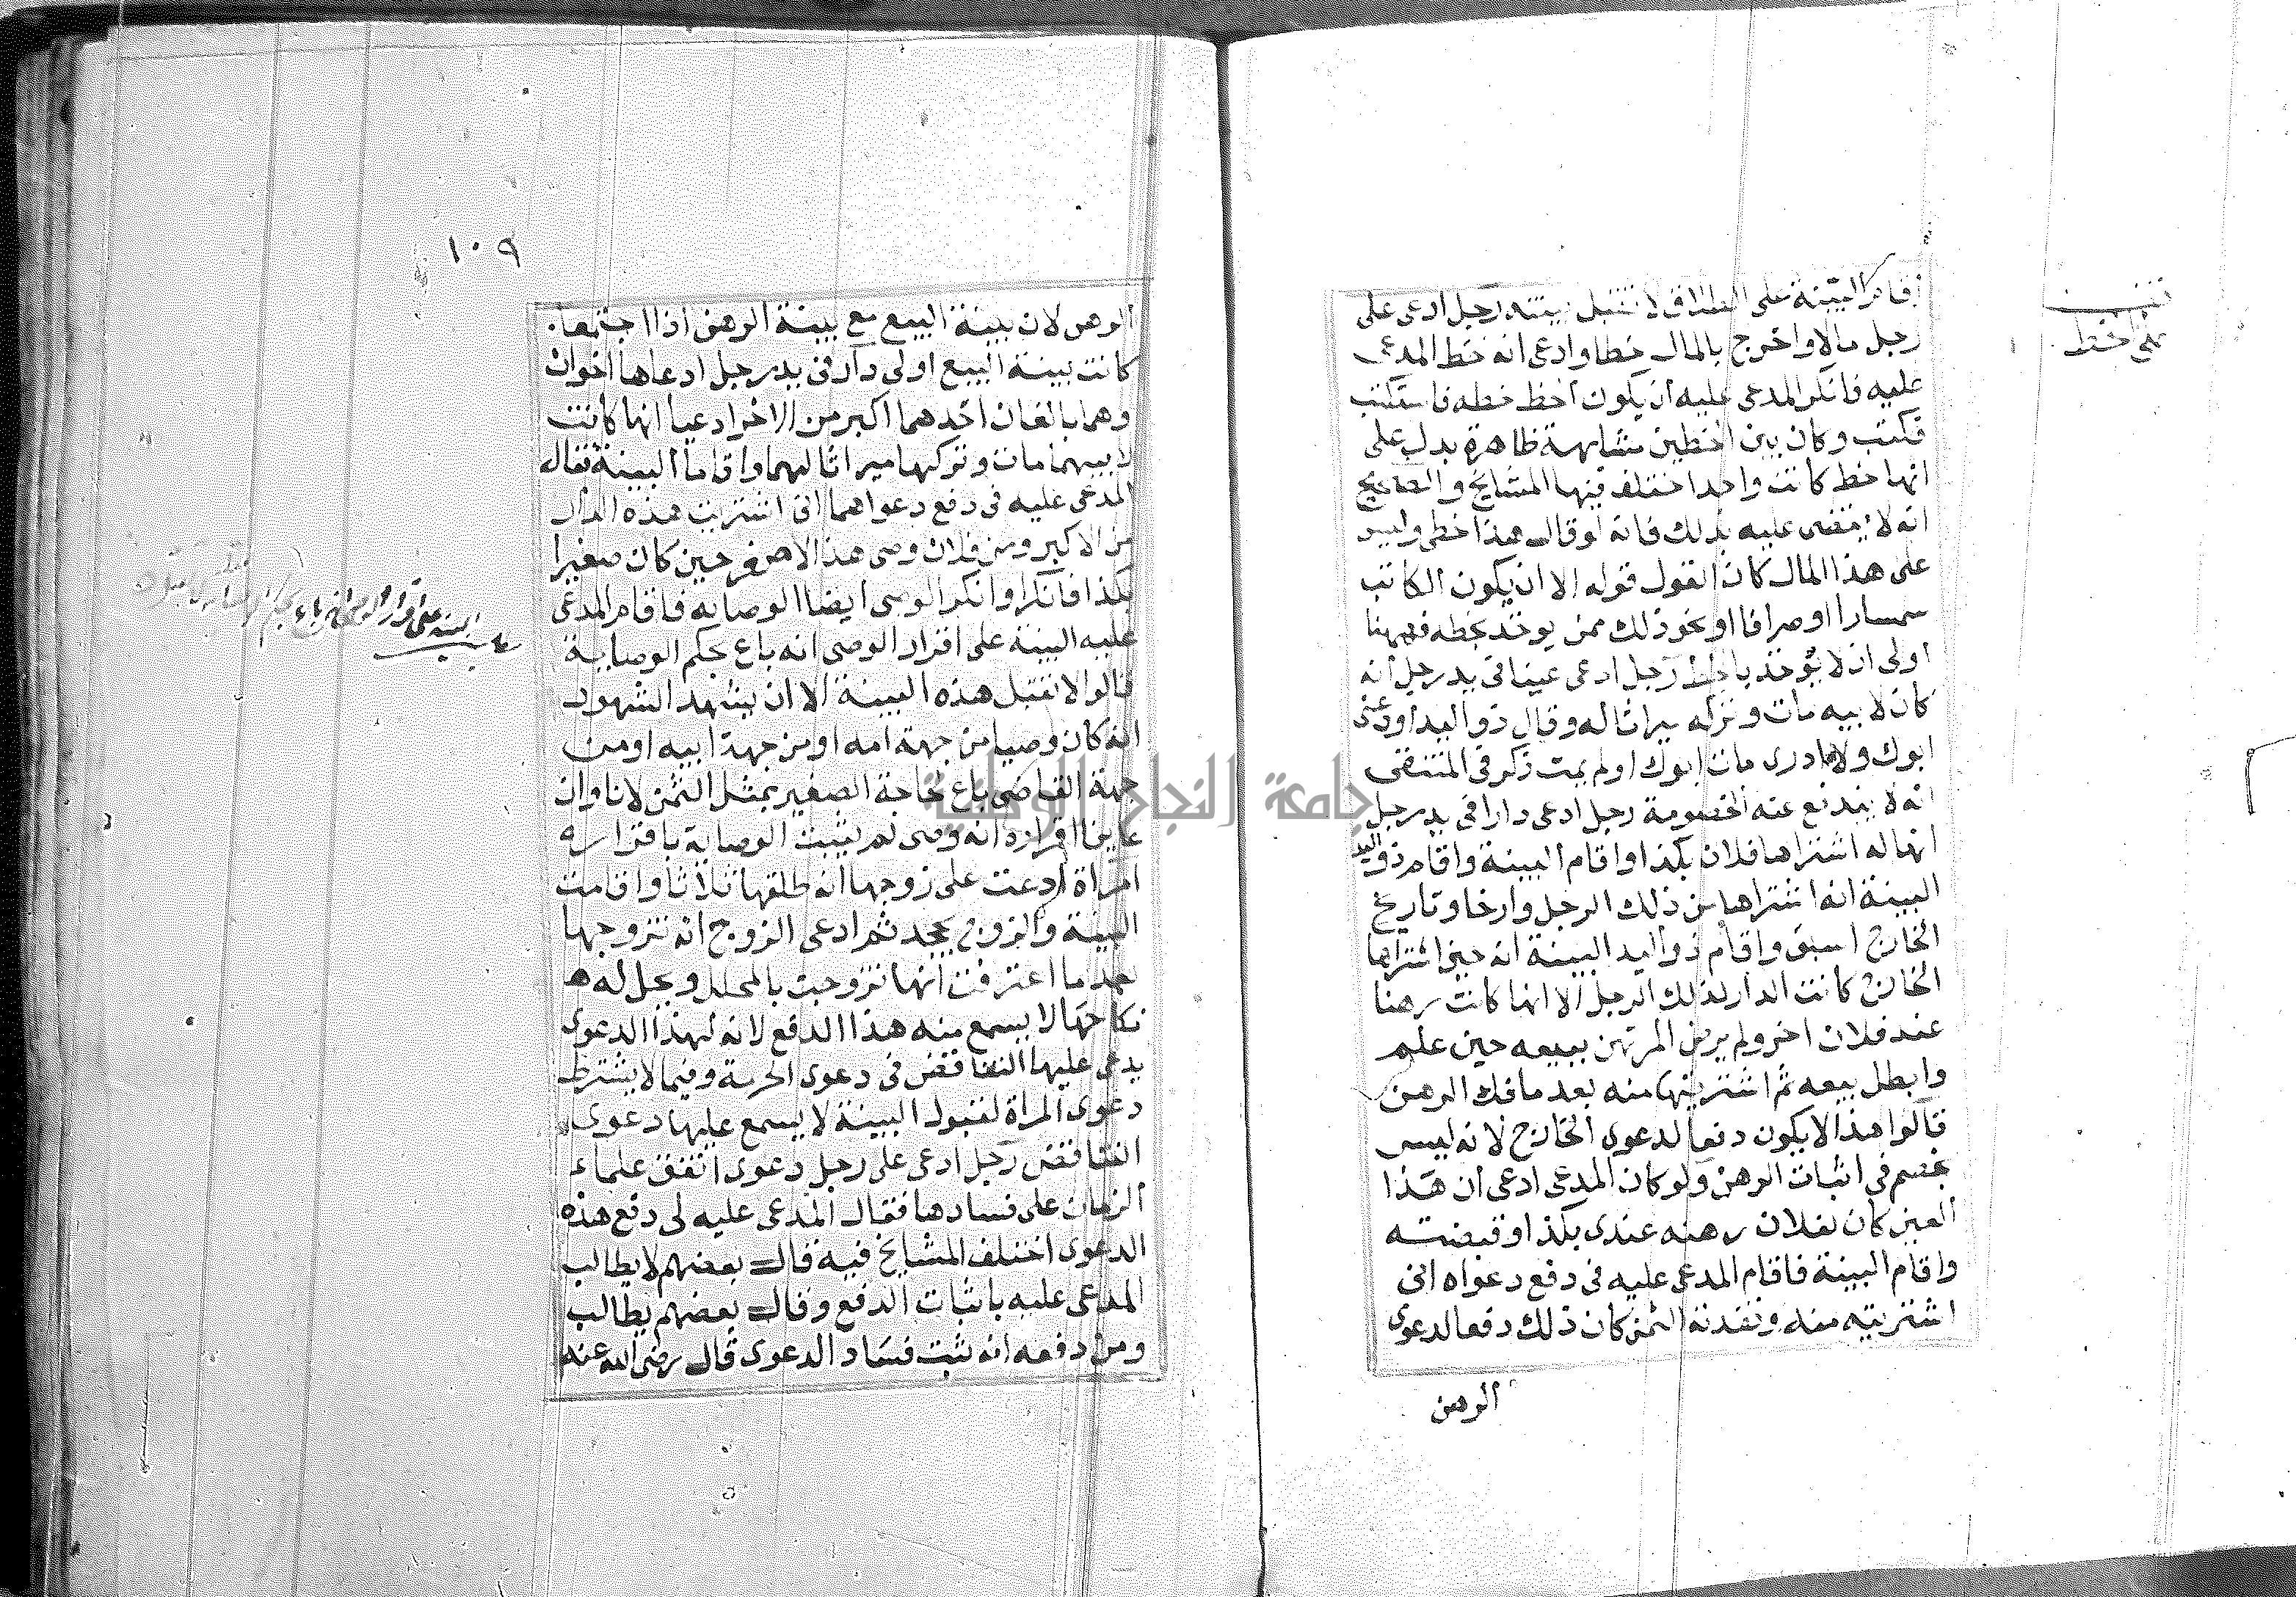 أقام البينة على الطلاق لا تقبل بينته رجل ادعى على
رجل مالا واخرج بالمال خطا وادعى انه خط المدعى
عليه فانكر المدعى عليه أن يكون الخط خطه فاستكتب
فكتب وكان بين الخطين مشابهة ظاهرة يدل على
انها خط كاتب واحد اختلف فيها المشايخ والصحيح
انه لا يقضى عليه بذلك فانه لو قال هذا خطى وليس
على هذا المال كان القول قوله الا ان يكون الكاتب
سمسارا او صرافا او نحو ذلك ممن يوخذ بخطه فههنا
اولى ان لا يوخذ بالخط رجل ادعى عينا فى يد رجل أنه
كان لابيه مات وتركه ميراثا له وقال ذو اليد اودعنى
ابوك ولا ادرى مات ابوك او لم يمت ذكر فى المنتقى
انه لا يندفع عنه الخصومة رجل ادعى دارا فى يد رجل
انها له اشتراها فلان بكذا واقام البينة واقام ذو اليد
البينة انه اشتراها من ذلك الرجل وارخا وتاريخ
الخارج اسبق واقام ذو اليد البينة انه حين اشتراها
الخارج كانت الدار لذلك الرجل الا انها كانت رهنا
عند فلان اخر ولم يرض المرتهن ببيعه حين علم
وابطل بيعه ثم اشتريتها منه بعد ما فك الرهن
قالوا هذا لا يكون دفعا لدعوى الخارج لانه ليس
بخصم فى اثبات الرهن ولو كان المدعى ادعى أن هذا
العين كان لفلان رهنه عندى بكذا وقبضته
واقام البينة فاقام المدعى عليه فى دفع دعواه انى
اشتريته منه ونقدته الثمن كان ذلك دفعا لدعوى
الرهن
على الخط
١٠٩
الرهن لان بينة البيع مع بينة الرهن اذا اجتمعا
كانت بينة البيع اولى دار فى يد رجل ادعاها اخوان
وهما بالغان احدهما اكبر من الاخر ادعيا انها كانت
لابيهما مات وتركها ميراثا لهما واقاما البينة فقال
المدعى عليه فى دفع دعواهما انى اشتريت هذه الدار
من الاكبر ومن فلان وصى هذا الاصغر حين كان صغيرا
بكذا فانكرا وانكر الوصى ايضا الوصاية فاقام المدعى
عليه البينة على اقرار الوصى انه باع بحكم الوصاية
قالوا لا تقبل هذه البينة الا ان يشهد الشهود
انه كان وصيا من جهة امه او من جهة ابيه او من
جهة القاضى باع لحاجة الصغير بمثل الثمن لانا وان
عاينا اقراره انه وصى لم يثبت الوصاية باقراره
امراة ادعت على زوجها انه طلقها ثلاثا واقامت
البينة والزوج يجحد ثم ادعى الزوج انه تزوجها
بعد ما اعترفت انها تزوجت بالمحلل ويحل له
نكاحها لا يسمع منه هذا الدفع لانه لهذا الدعوى
يدعى عليها التناقض فى دعوى الحرمة وفيما لا يشترط
دعوى المراة لقبول البينة لا يسمع عليها دعوى
التناقض رجل ادعى على رجل دعوى اتفق علماء
الزمان على فسادها فقال المدعى عليه لى دفع هذه
الدعوى اختلف المشايخ فيه قال بعضهم لا يطالب
المدعى عليه باثبات الدفع وقال بعضهم يطالب
ومن دفعه انه يثبت فساد الدعوى قال رضى الله عنه
البينة على اقرار الوصى انه باع بحكم
جامعة النجاح الوطنية